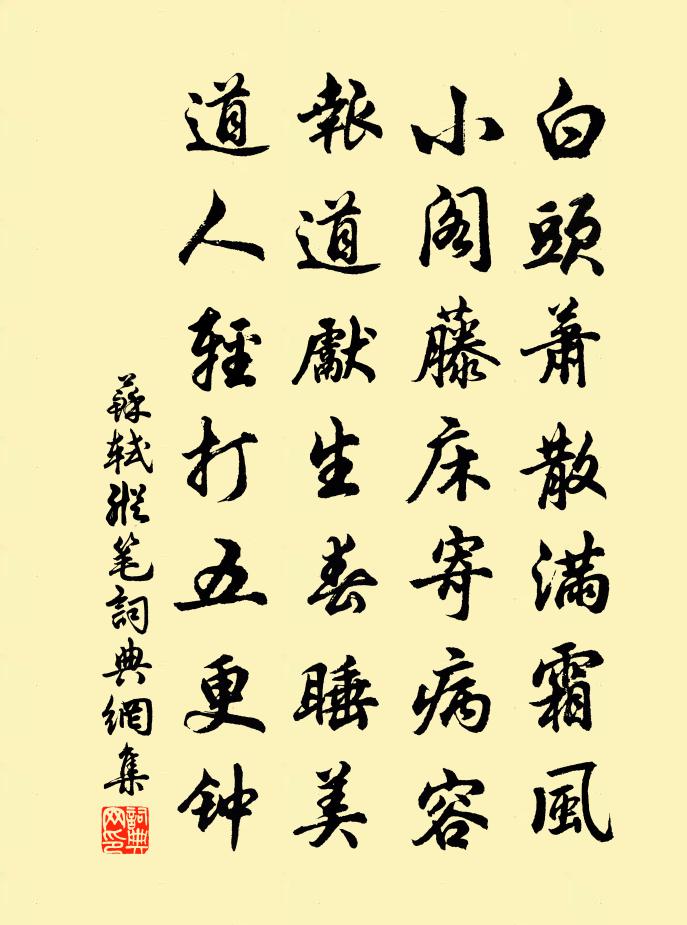 白頭蕭散滿霜風
小閣藤床寄病容
報道獻生春睡美
道人輕打五更钟
蘇軾縱笔詞典網集
詞典
网印